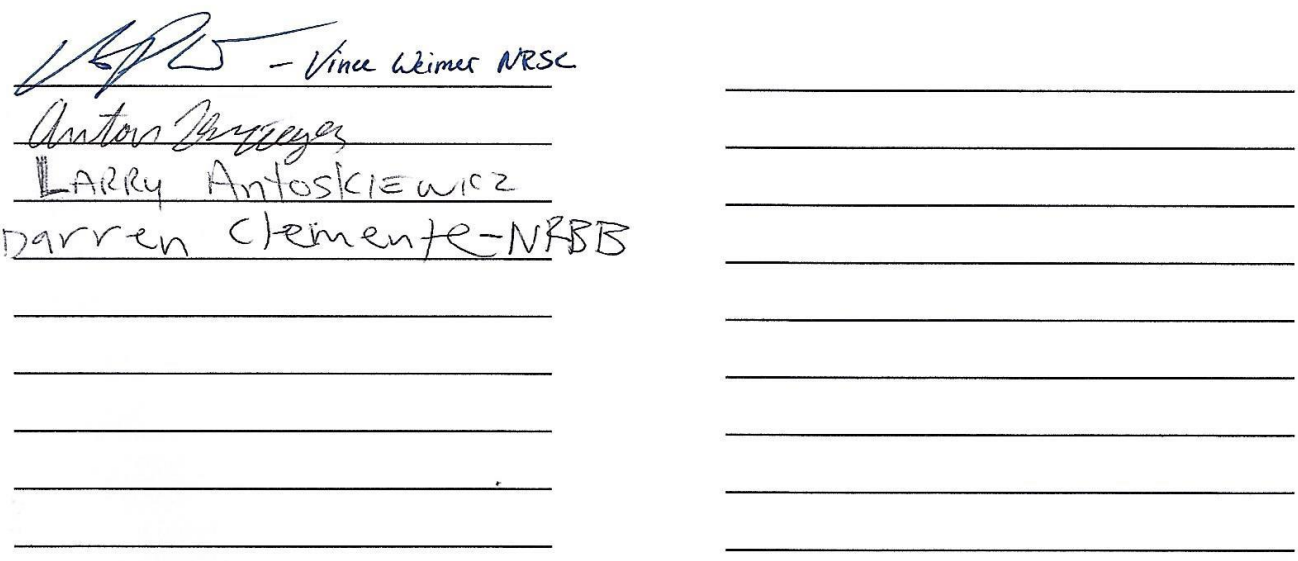 - Vince Weimer NRSC
Anton
LARRY AntosKIEwicz
Darren Clemente-NRBB